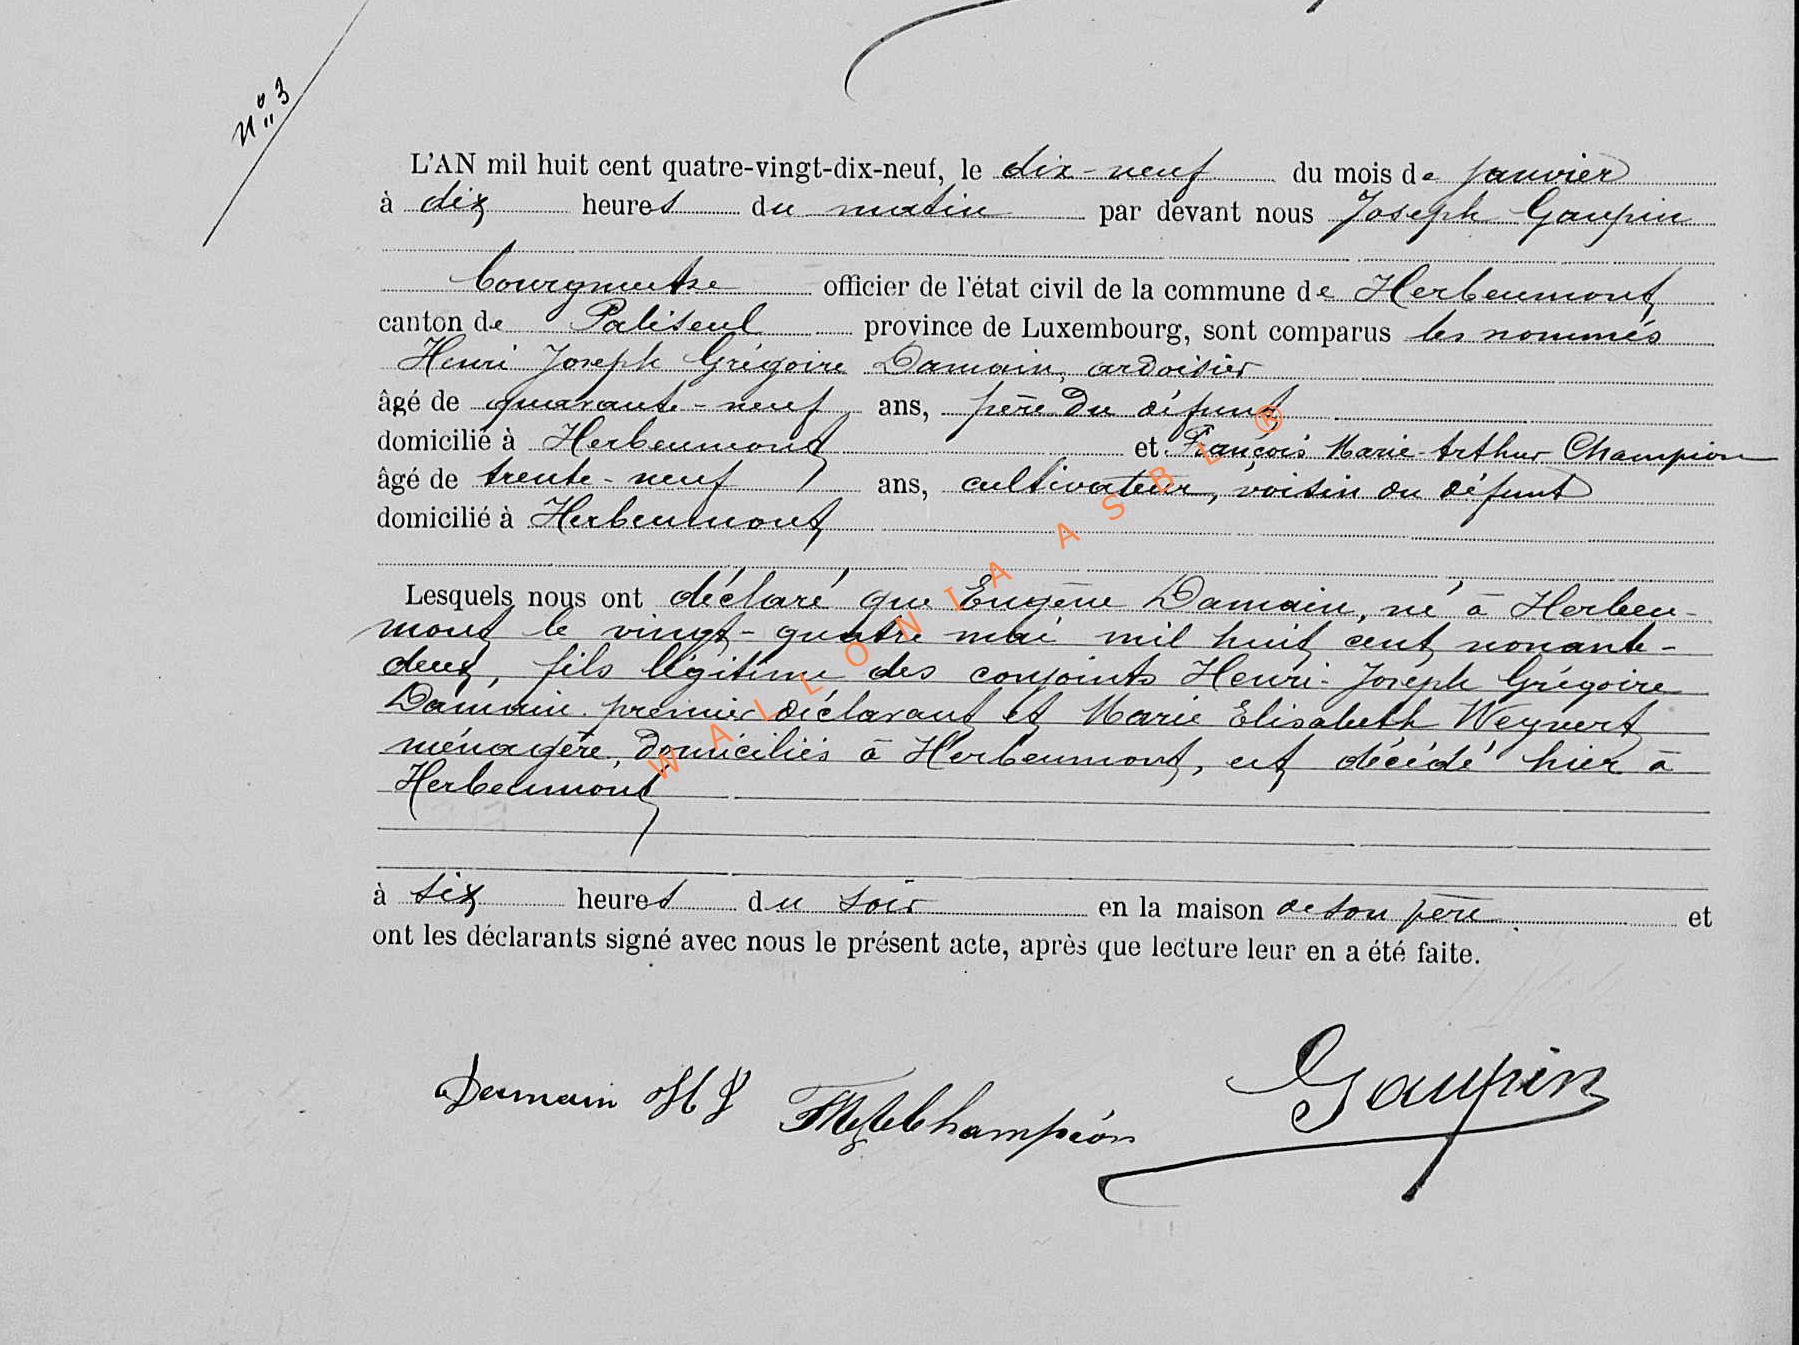 N° 3
L'AN mil huit cent quatre-vingt-dix-neuf, le dix-neuf du mois de janvier
à dix heures du matin par devant nous Joseph Gaupin
bourgmestre officier de l'état civil de la commune de Herbeumont
canton de Paliseul province de Luxembourg, sont comparus les nommés
Henri Joseph Grégoire Damain, ardoisier
âgé de quarante-neuf ans, père du défunt
domicilié à Herbeumont et François Marie-Arthur Champion
âgé de trente-neuf ans, cultivateur, voisin du défunt
domicilié à Herbeumont
Lesquels nous ont déclaré que Eugène Damain, né à Herbeu-
mont le vingt-quatre mai mil huit cent nonante-
deux, fils légitime des conjoints Henri-Joseph Grégoire
Damain premier déclarant et Marie Elisabeth Weynert
ménagère, domiciliés à Herbeumont, est décédé hier à
Herbeumont
à six heures du soir en la maison de son père et
ont les déclarants signé avec nous le présent acte, après que lecture leur en a été faite.
Damain H J Champion Gaupin
WALLONIA ASBL ®